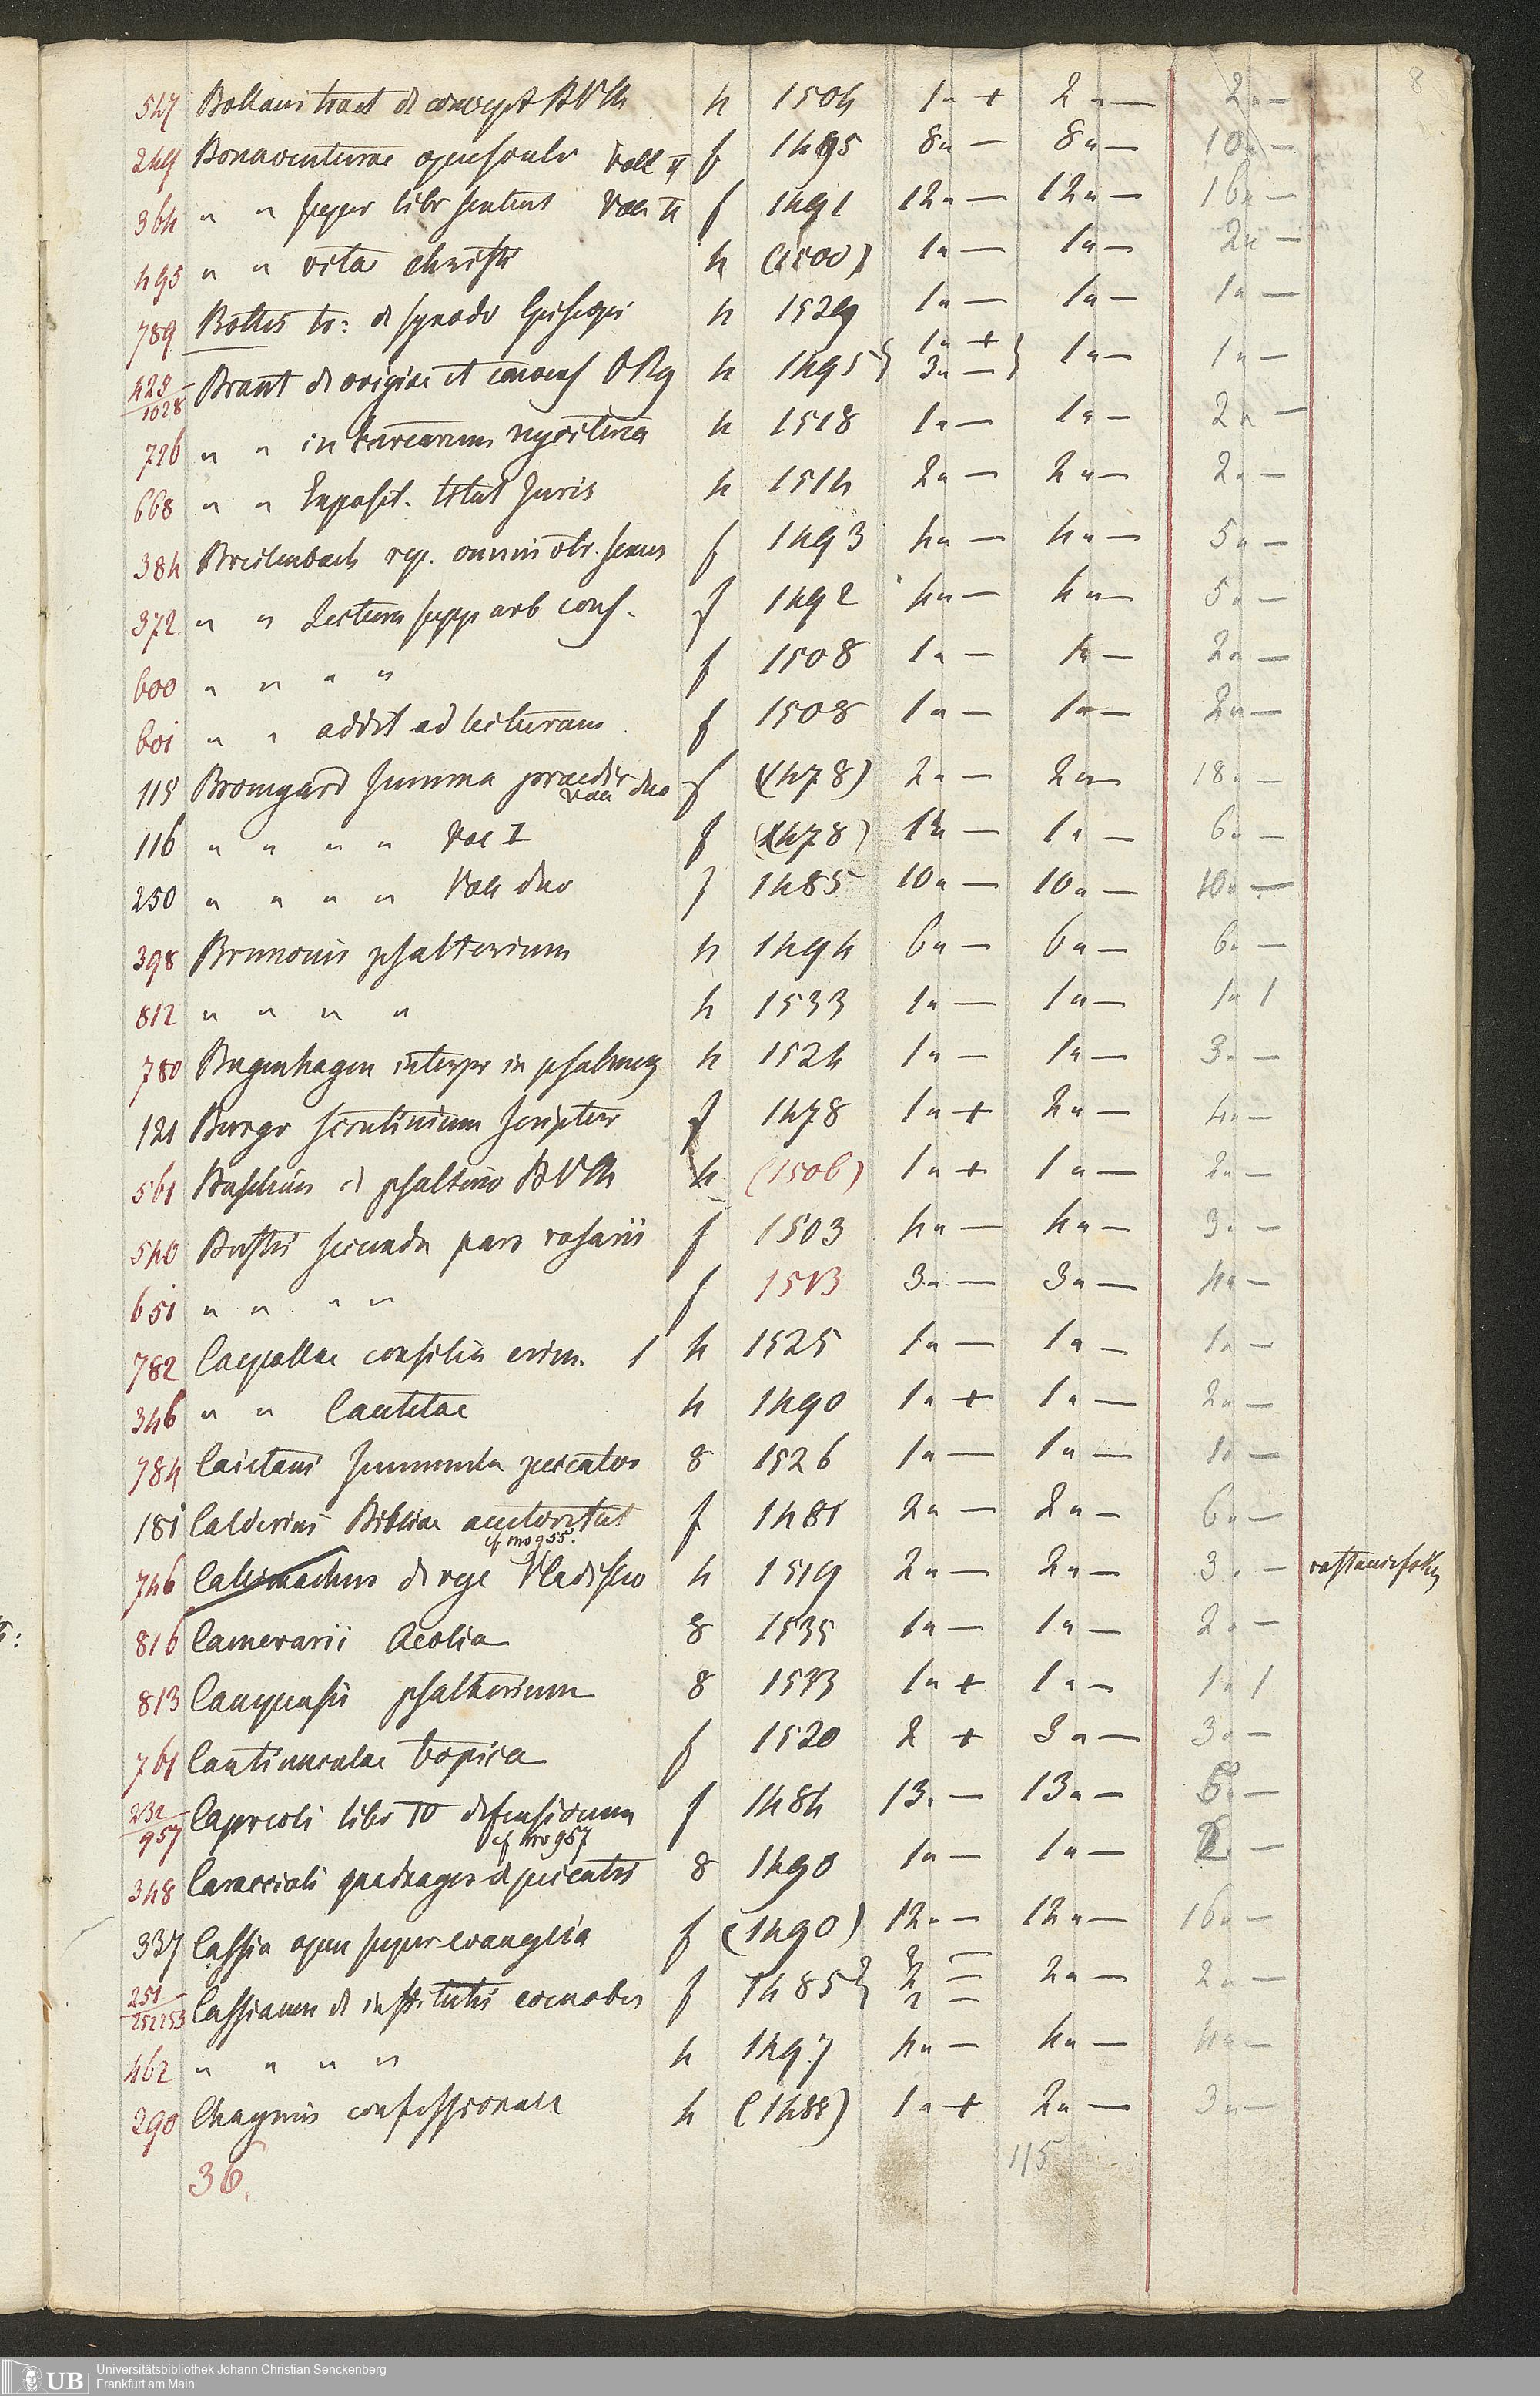 8
547 Bollani tract de concept BVM 4 1504 1 „ + 2 „ — 2 „ —
249 Bonaventurae opuscula Voll II f 1495 8 „ — 8 „ — 10 „ —
364 „ „ super libr sentent Voll II f 1491 12 „ — 12 „ — 16 „ —
495 „ „ vita Christi 4 (1500) 1 „ — 1 „ — 2 „ —
789 Bottis tr: d synodo Episcopi 4 1529 1 „ — 1 „ — 1 „ —
423/1028 Brant de origine et convers 4 1495 } 1 „ + 3 „ — } 1 „ — 1 „ —
726 „ „ in 4 1518 1 „ — 1 „ — 2 „ —
668 „ „ Exposit. titul Juris 4 1514 2 „ — 2 „ — 2 „ —
384 Breitenbach rep. omnis utr. sexus f 1493 4 „ — 4 „ — 5 „ —
372 „ „ Lectura supp arb cons. f 1492 4 „ — 4 „ — 5 „ —
600 „ „ „ „ f 1508 1 „ — 1 „ — 2 „ —
601 „ „ addit ad lecturam f 1508 1 „ — 1 „ — 2 „ —
115 Bromyard Summa praedic Voll duo f (1478) 2 „ — 2 „ — 18 „ —
116 „ „ „ „ Vol I f (1478) 1 „ — 1 „ — 6 „ —
250 „ „ „ „ Voll duo f 1485 10 „ — 10 „ — 10 „ —
398 Brunonis psalterium 4 1494 6 „ — 6 „ — 6 „ —
812 „ „ „ „ 4 1533 1 „ — 1 „ — 1 „ 1
780 Bugenhagen interpr in psalmos 4 1524 1 „ — 1 „ — 3 „ —
121 Burgo scrutinium scriptur f 1478 1 „ + 2 „ — 4 „ —
561 Buschius d psalterio BVM 4 (1506) 1 „ + 1 „ — 2 „ —
540 Bustis secunda pars rosarii f 1503 4 „ — 4 „ — 3 „ —
651 „ „ „ „ f 1513 3 „ — 3 „ — 4 „ —
782 Caepollae consilia crim. 1 4 1525 1 „ — 1 „ — 1 „ —
346 „ „ Cautelae 4 1490 1 „ + 1 „ — 2 „ —
784 Caietani Summula peccator 8 1526 1 „ — 1 „ — 1 „ —
181 Calderini Bibliae auctoritat f 1481 2 „ — 2 „ — 6 „ —
cf no 955.
746 Calimachus d rege Vladislao 4 1519 2 „ — 2 „ — 3 „ —
816 Camerarii Aeolia 8 1535 1 „ — 1 „ — 2 „ —
813 Campensis psalterium 8 1533 1 „ + 1 „ — 1 „ 1
761 Cantiunculae topica f 1520 2 + 3 „ — 3 „ —
232/957 Capreoli libr IV defensionum f 1484 13 „ — 13 „ —
cf no 957
348 Caraccioli quadrages d peccatis 8 1490 1 „ — 1 „ —
337 Cassia opus super evangelia f (1490) 12 „ — 12 „ — 16 „ —
251/252 253 Cassianus d institutis coenobior f 1485 } 2 — 2 — 2 — 2 „ — 2 „ —
462 „ „ „ „ 4 1497 4 „ — 4 „ — 4 „ —
290 Chaymis confessionale 4 (1488) 1 „ + 2 „ — 3 „ —
36. 115
UB Universitätsbibliothek Johann Christian Senckenberg
Frankfurt am Main